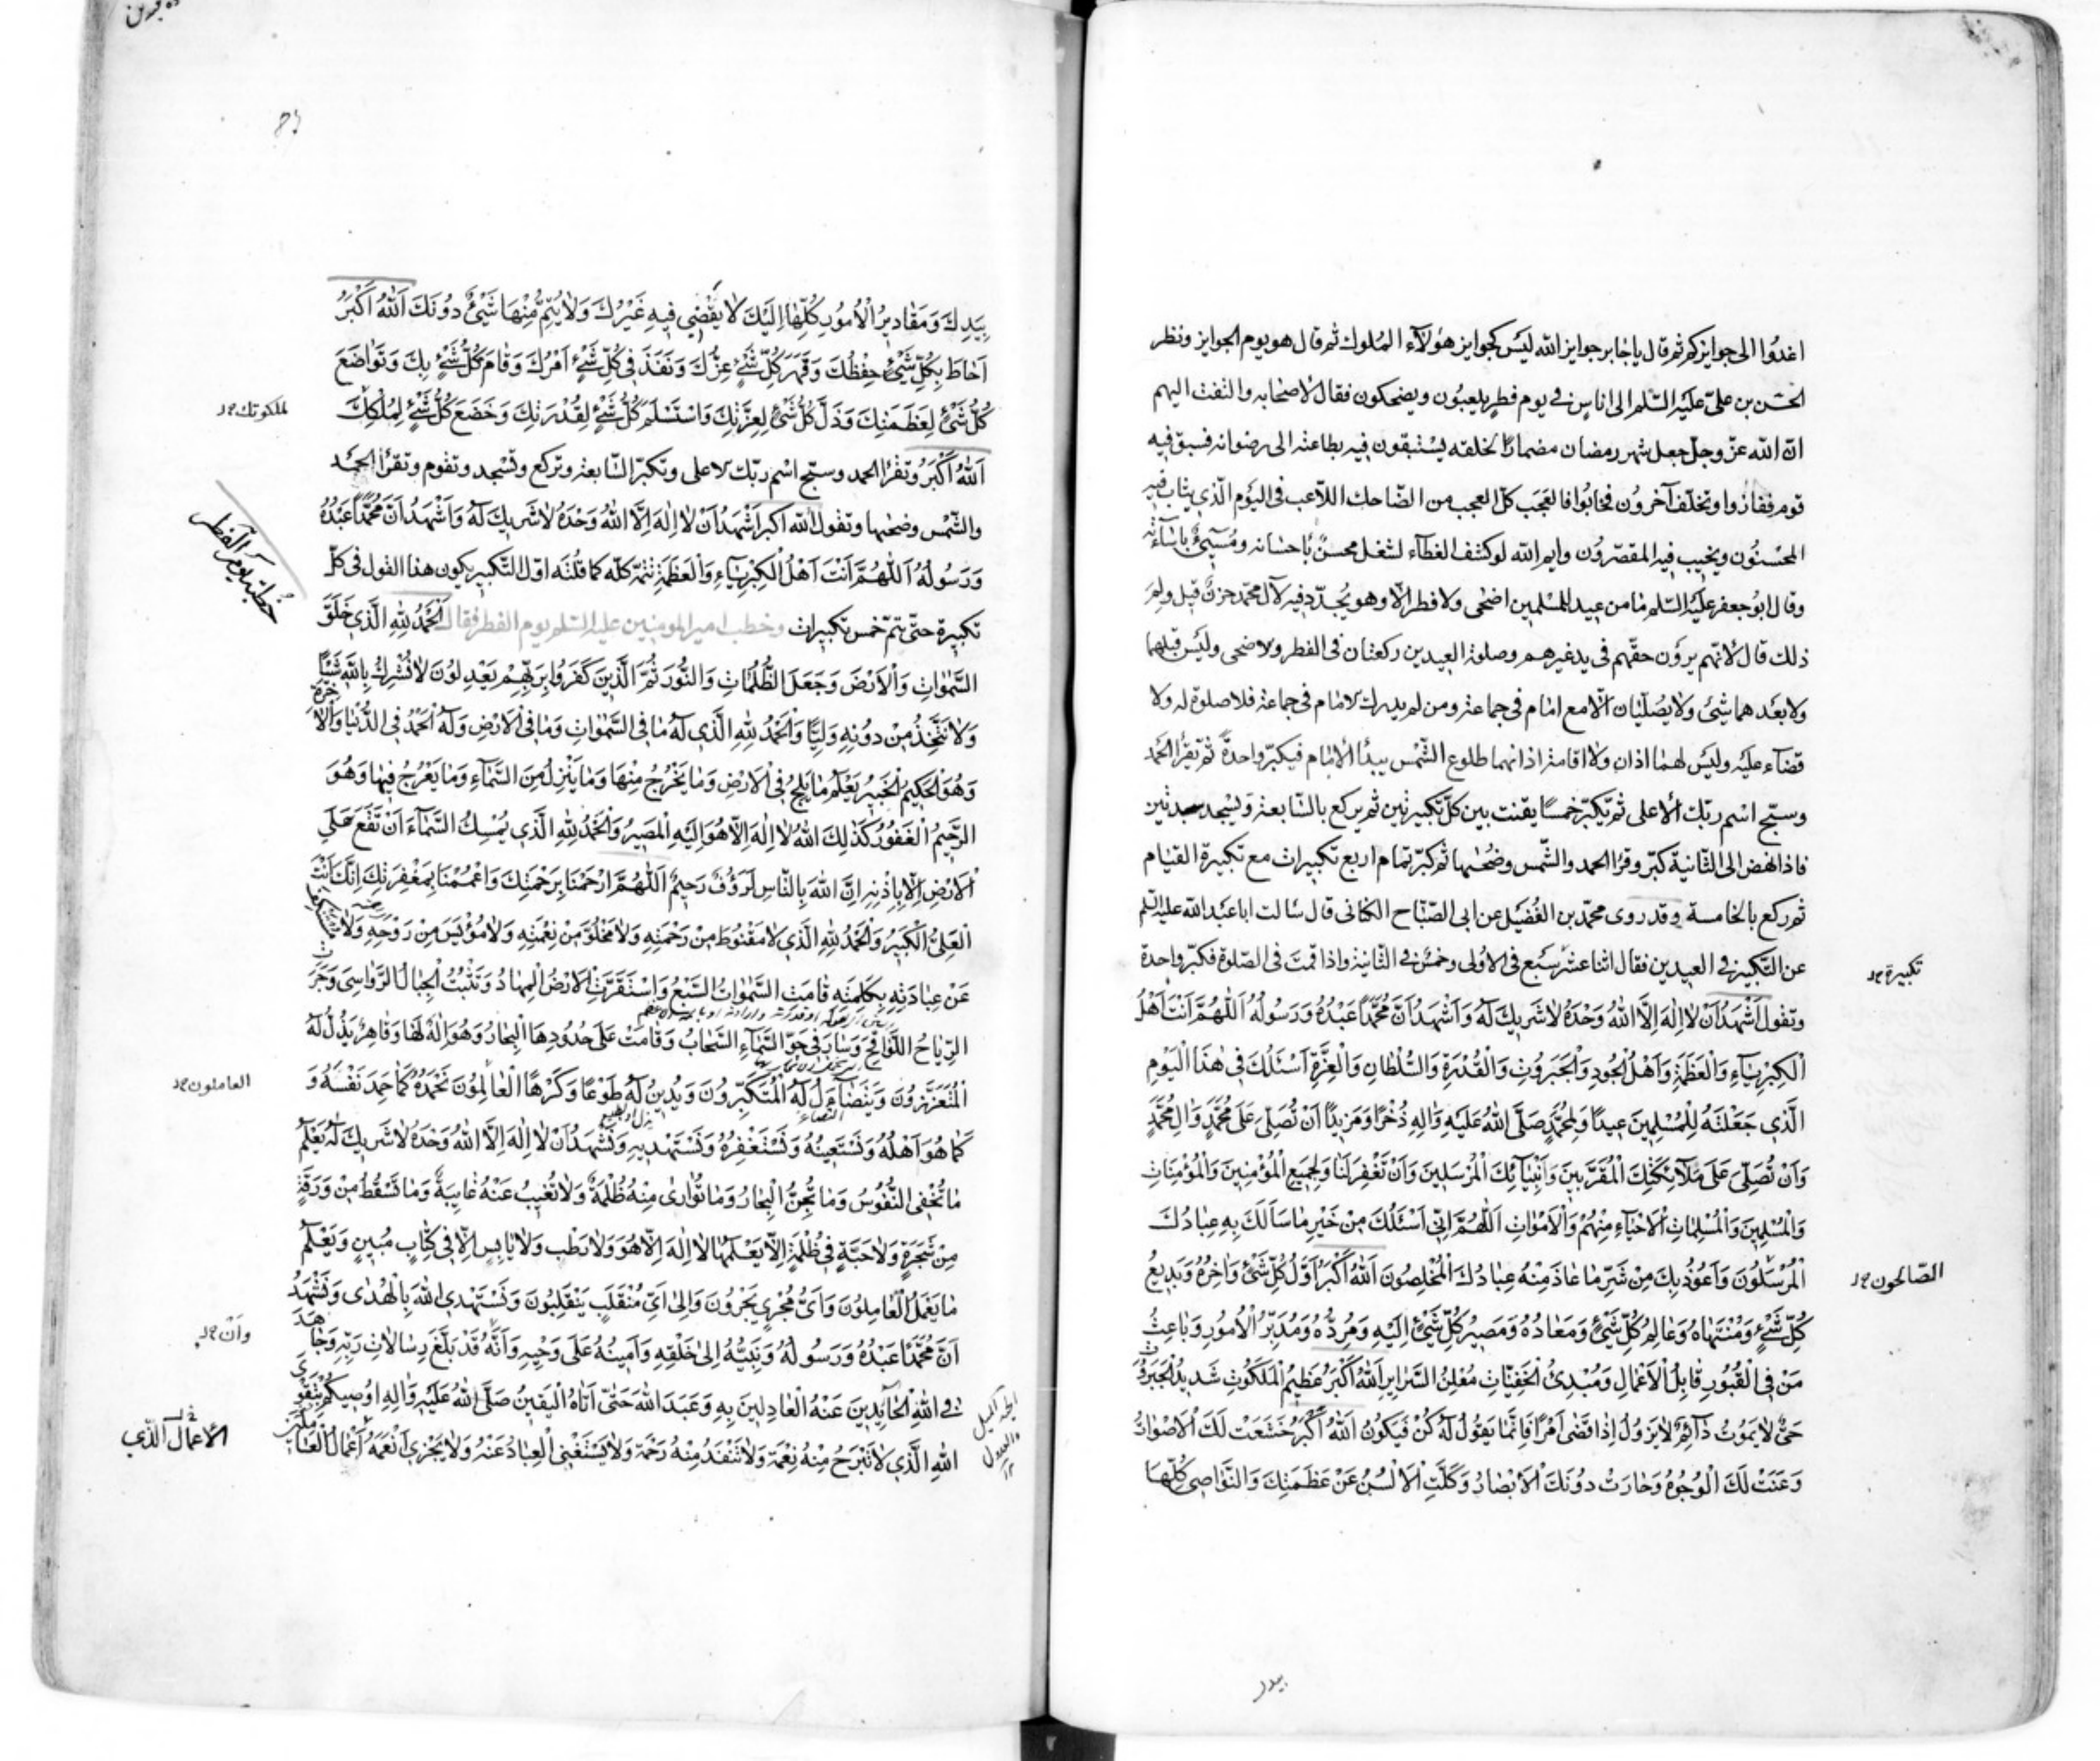 اغدوا الى جوايزكم ثم قال يا جابر جوايز الله ليس كجوايز هؤلاء الملوك ثم قال هو يوم الجوايز ونظر
الحسن بن علىّ عليه السّلم الى اناس فى يوم فطر يلعبون ويضحكون فقال لاصحابه والتفت اليهم
انّ الله عزّ وجلّ جعل شهر رمضان مضمارًا لخلقه يستبقون فيه بطاعته الى رضوانه فسبق فيه
قوم ففازوا وتخلّف آخرون فخابوا فالعجب كلّ العجب من الضّاحك اللاّعب فى اليوم الّذى يثاب فيه
المحسنون ويخيب فيه المقصّرون وايم الله لو كشف الغطآء لشغل محسنٌ باحسانه ومسيئٌ باسآئته
وقال ابو جعفر عليه السّلم ما من عيد للمسلمين اضحى ولا فطر الاّ وهو يجدّد فيه لآل محمّد حزنٌ قيل ولم
ذلك قال لانّهم يرون حقّهم فى يد غيرهم وصلوة العيدين ركعتان فى الفطر والاضحى وليس قبلهما
ولا بعدهما شيئ ولا يصلّيان الاّ مع امام فى جماعة ومن لم يدرك الامام فى جماعة فلا صلوة له ولا
قضآء عليه وليس لهما اذان ولا اقامة اذانهما طلوع الشّمس يبدأ الامام فيكبّر واحدةً ثم يقرأ الحمد
وسبّح اسم ربّك الأعلى ثم يكبّر خمسًا يقنت بين كلّ تكبيرتين ثم يركع بالسّابعة ويسجد سجدتين
فاذا نهض الى الثّانية كبّر وقرأ الحمد والشّمس وضحٰيها ثم كبّر تمام اربع تكبيرات مع تكبيرة القيام
ثم ركع بالخامسة وقد روى محمّد بن الفُضيل عن ابى الصّبّاح الكنانى قال سالت ابا عبد الله عليه السّلم
عن التّكبير فى العيدين فقال اثنا عشر سبع فى الاولى وخمس فى الثّانية واذا قمت فى الصّلوة فكبّر واحدة
تكبيرة
وتقول اَشْهَدُ اَنْ لا اِلٰهَ اِلاَّ اللهُ وَحْدَهُ لا شَريكَ لَهُ وَاَشْهَدُ اَنَّ مُحَمَّدًا عَبْدُهُ وَرَسُولُهُ اَللّٰهُمَّ اَنْتَ اَهْلُ
الْكِبْرِيآءِ وَالْعَظَمَةِ وَاَهْلُ الْجُودِ وَالْجَبَرُوتِ وَالْقُدْرَةِ وَالسُّلْطانِ وَالْعِزَّةِ اَسْئَلُكَ فى هٰذَا الْيَوْمِ
الَّذى جَعَلْتَهُ لِلْمُسْلِمينَ عيدًا وَلِمُحَمَّدٍ صَلَّى اللهُ عَلَيْهِ وَاٰلِهِ ذُخْرًا وَمَزيدًا اَنْ تُصَلِّىَ عَلى مُحَمَّدٍ وَاٰلِ مُحَمَّدٍ
وَاَنْ تُصَلِّىَ عَلى مَلآئِكَتِكَ الْمُقَرَّبينَ وَاَنْبِيآئِكَ الْمُرْسَلينَ وَاَنْ تَغْفِرَ لَنا وَلِجَميعِ الْمُؤْمِنينَ وَالْمُؤْمِناتِ
وَالْمُسْلِمينَ وَالْمُسْلِماتِ الْاَحْيآءِ مِنْهُمْ وَالْاَمْواتِ اَللّٰهُمَّ اِنّى اَسْئَلُكَ مِنْ خَيْرِ ما سَاَلَكَ بِهِ عِبادُكَ
الْمُرْسَلُونَ وَاَعُوذُ بِكَ مِنْ شَرِّ ما عاذَ مِنْهُ عِبادُكَ الْمُخْلِصُونَ اَللهُ اَكْبَرُ اَوَّلُ كُلِّ شَيْئٍ وَاٰخِرُهُ وَبَديعُ
الصّالحون
كُلِّ شَيْئٍ وَمُنْتَهاهُ وَعالِمُ كُلِّ شَيْئٍ وَمَعادُهُ وَمَصيرُ كُلِّ شَيْئٍ اِلَيْهِ وَمَرَدُّهُ وَمُدَبِّرُ الْاُمُورِ وَباعِثُ
مَنْ فِى الْقُبُورِ قابِلُ الْاَعْمالِ وَمُبْدِئُ الْخَفِيّاتِ مُعْلِنُ السَّرايِرِ اَللهُ اَكْبَرُ عَظيمُ الْمَلَكُوتِ شَديدُ الْجَبَرُوتِ
حَىٌّ لا يَمُوتُ دآئِمٌ لا يَزُولُ اِذا قَضى اَمْرًا فَاِنَّما يَقُولُ لَهُ كُنْ فَيَكُونُ اَللهُ اَكْبَرُ خَشَعَتْ لَكَ الْاَصْواتُ
وَعَنَتْ لَكَ الْوُجُوهُ وَحارَتْ دُونَكَ الْاَبْصارُ وَكَلَّتِ الْاَلْسُنُ عَنْ عَظَمَتِكَ وَالنَّواصى كُلُّها
بيدك
بِيَدِكَ وَمَقاديرُ الْاُمُورِ كُلُّها اِلَيْكَ لا يَقْضى فيهِ غَيْرُكَ وَلا يَتِمُّ مِنْها شَيْئٌ دُونَكَ اَللهُ اَكْبَرُ
اَحاطَ بِكُلِّ شَيْئٍ حِفْظُكَ وَقَهَرَ كُلَّ شَيْئٍ عِزُّكَ وَنَفَذَ فى كُلِّ شَيْئٍ اَمْرُكَ وَقامَ كُلُّ شَيْئٍ بِكَ وَتَواضَعَ
كُلُّ شَيْئٍ لِعَظَمَتِكَ وَذَلَّ كُلُّ شَيْئٍ لِعِزَّتِكَ وَاسْتَسْلَمَ كُلُّ شَيْئٍ لِقُدْرَتِكَ وَخَضَعَ كُلُّ شَيْئٍ لِمُلْكِكَ
ملكوتك
اَللهُ اَكْبَرُ وتقرأ الحمد وسبّح اسم ربّك الاعلى وتكبّر السّابعة وتركع وتسجد وتقوم وتقرأ الحمد
والشّمس وضحٰيها وتقول الله اكبر اَشْهَدُ اَنْ لا اِلٰهَ اِلاَّ اللهُ وَحْدَهُ لا شَريكَ لَهُ وَاَشْهَدُ اَنَّ مُحَمَّدًا عَبْدُهُ
وَرَسُولُهُ اَللّٰهُمَّ اَنْتَ اَهْلُ الْكِبْرِيآءِ وَالْعَظَمَةِ تتمّه كلّه كما قلته اوّل التّكبير يكون هذا القول فى كلّ
خطبة يوم الفطر
تكبيرة حتّى يتمّ خمس تكبيرات وخطب امير المومنين عليه السّلم يوم الفطر فقال اَلْحَمْدُ لِلّٰهِ الَّذى خَلَقَ
السَّمٰواتِ وَالْاَرْضَ وَجَعَلَ الظُّلُماتِ وَالنُّورَ ثُمَّ الَّذينَ كَفَرُوا بِرَبِّهِمْ يَعْدِلُونَ لا نُشْرِكُ بِاللهِ شَيْئًا
وَلا نَتَّخِذُ مِنْ دُونِهِ وَلِيًّا وَالْحَمْدُ لِلّٰهِ الَّذى لَهُ ما فِى السَّمٰواتِ وَما فِى الْاَرْضِ وَلَهُ الْحَمْدُ فِى الدُّنْيا وَالْاٰخِرَةِ
وَهُوَ الْحَكيمُ الْخَبيرُ يَعْلَمُ ما يَلِجُ فِى الْاَرْضِ وَما يَخْرُجُ مِنْها وَما يَنْزِلُ مِنَ السَّمآءِ وَما يَعْرُجُ فيها وَهُوَ
الرَّحيمُ الْغَفُورُ كَذٰلِكَ اللهُ لا اِلٰهَ اِلاّ هُوَ اِلَيْهِ الْمَصيرُ وَالْحَمْدُ لِلّٰهِ الَّذى يُمْسِكُ السَّمآءَ اَنْ تَقَعَ عَلَى
الْاَرْضِ اِلاّ بِاِذْنِهِ اِنَّ اللهَ بِالنّاسِ لَرَؤُفٌ رَحيمٌ اَللّٰهُمَّ ارْحَمْنا بِرَحْمَتِكَ وَاعْمُمْنا بِمَغْفِرَتِكَ اِنَّكَ اَنْتَ
الْعَلِىُّ الْكَبيرُ وَالْحَمْدُ لِلّٰهِ الَّذى لا مَقْنُوطَ مِنْ رَحْمَتِهِ وَلا مَخْلُوَّ مِنْ نِعْمَتِهِ وَلا مُؤْيَسَ مِنْ رَوْحِهِ وَلا مُسْتَنْكَفَ
عَنْ عِبادَتِهِ بِكَلِمَتِهِ قامَتِ السَّمٰواتُ السَّبْعُ وَاسْتَقَرَّتِ الْاَرْضُ الْمِهادُ وَثَبَتَتِ الْجِبالُ الرَّواسى وَجَرَتِ
الرِّياحُ اللَّواقِحُ وَسارَ فى جَوِّ السَّمآءِ السَّحابُ وَقامَتْ عَلى حُدُودِهَا الْبِحارُ وَهُوَ اِلٰهٌ لَها وَقاهِرٌ يَذِلُّ لَهُ
الْمُتَعَزِّزُونَ وَيَتَضآءَلُ لَهُ الْمُتَكَبِّرُونَ وَيَدينُ لَهُ طَوْعًا وَكَرْهًا الْعالَمُونَ نَحْمَدُهُ كَما حَمِدَ نَفْسَهُ وَ
العاملون
كَما هُوَ اَهْلُهُ وَنَسْتَعينُهُ وَنَسْتَغْفِرُهُ وَنَسْتَهْديهِ وَنَشْهَدُ اَنْ لا اِلٰهَ اِلاَّ اللهُ وَحْدَهُ لا شَريكَ لَهُ يَعْلَمُ
ما تُخْفِى النُّفُوسُ وَما تُجِنُّ الْبِحارُ وَما تَوارى مِنْهُ ظُلْمَةٌ وَلا تَغيبُ عَنْهُ غايِبَةٌ وَما تَسْقُطُ مِنْ وَرَقَةٍ
مِنْ شَجَرَةٍ وَلا حَبَّةٍ فى ظُلْمَةٍ اِلاّ يَعْلَمُها لا اِلٰهَ اِلاّ هُوَ وَلا رَطْبٍ وَلا يابِسٍ اِلاّ فى كِتابٍ مُبينٍ وَيَعْلَمُ
ما يَعْمَلُ الْعامِلُونَ وَاَىَّ مُجْرًى يَجْرُونَ وَاِلى اَىِّ مُنْقَلَبٍ يَنْقَلِبُونَ وَنَسْتَهْدِى اللهَ بِالْهُدى وَنَشْهَدُ
وانّ
اَنَّ مُحَمَّدًا عَبْدُهُ وَرَسُولُهُ وَنَبِيُّهُ اِلى خَلْقِهِ وَاَمينُهُ عَلى وَحْيِهِ وَاَنَّهُ قَدْ بَلَّغَ رِسالاتِ رَبِّهِ وَجاهَدَ
فِى اللهِ الْحآئِدينَ عَنْهُ الْعادِلينَ بِهِ وَعَبَدَ اللهَ حَتّى اَتاهُ الْيَقينُ صَلَّى اللهُ عَلَيْهِ وَاٰلِهِ اُوصيكُمْ بِتَقْوَى
اللهِ الَّذى لا تَبْرَحُ مِنْهُ نِعْمَةٌ وَلا تَنْفَدُ مِنْهُ رَحْمَةٌ وَلا يَسْتَغْنِى الْعِبادُ عَنْهُ وَلا يَجْزى اَنْعُمَهُ اَعْمالُ الْعامِلينَ
الاعمال الّذى